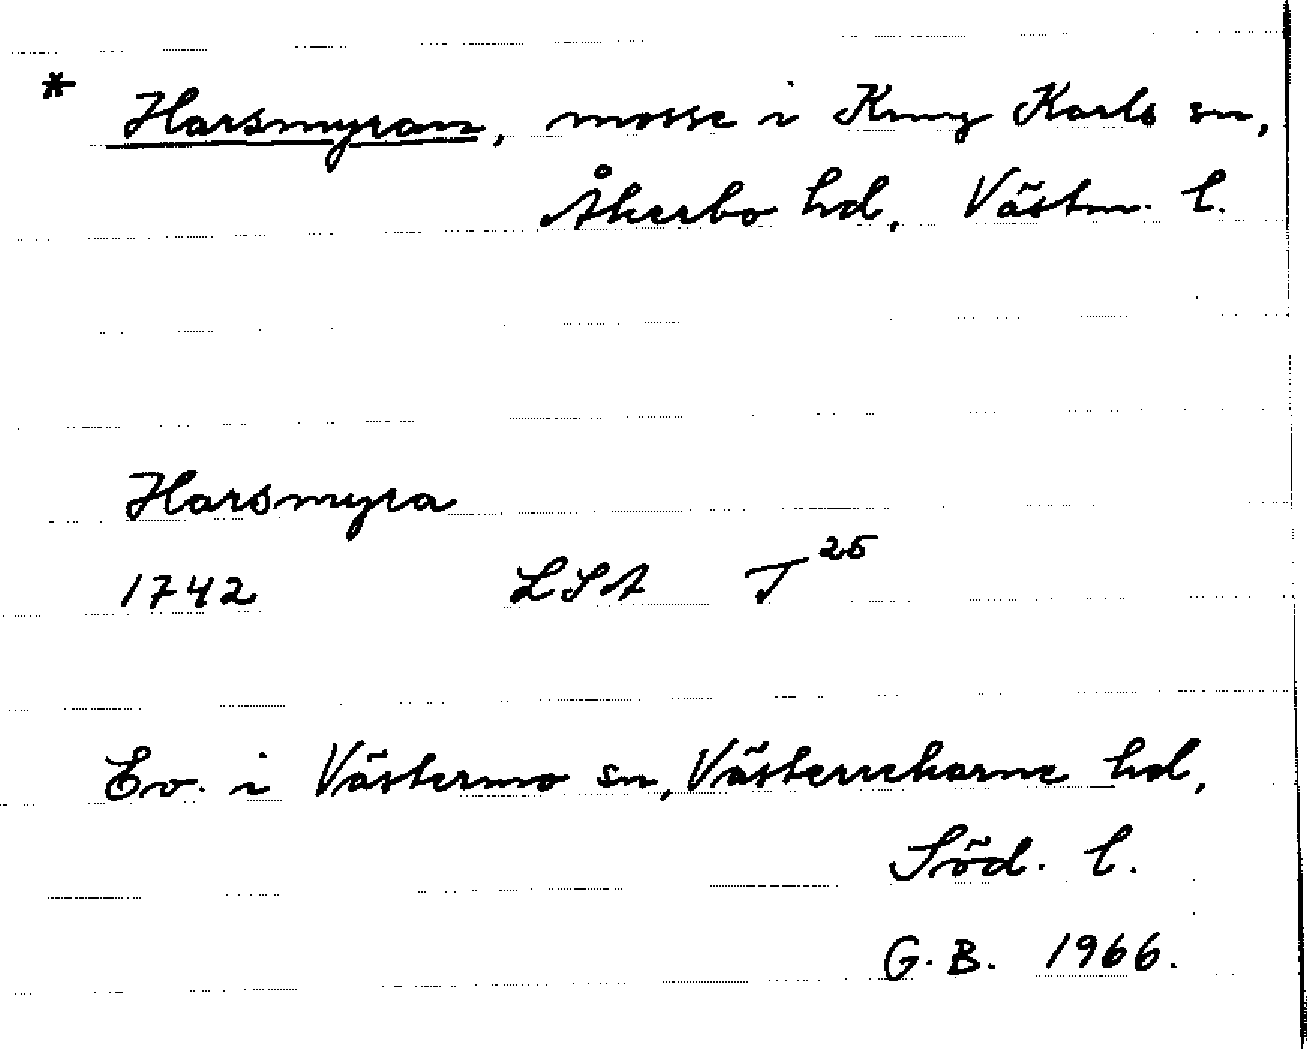 * Harsmyran, mosse i Kung Karls sn,
Åkerbo hd, Västm. l.
Harsmyra
1742 LSA T 25
Ev. i Västermo sn, Västerrekarne hd,
Söd. l.
G. B. 1966.